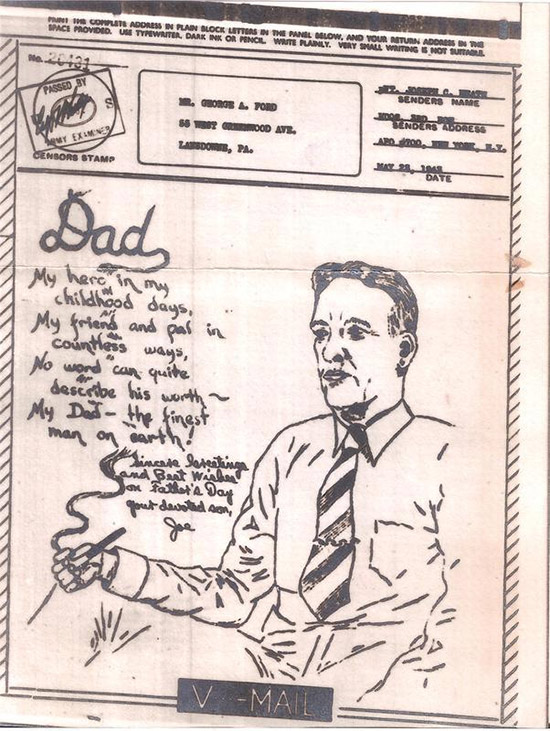 PRINT THE COMPLETE ADDRESS IN PLAIN BLOCK LETTERS IN THE PANEL BELOW, AND YOUR RETURN ADDRESS IN THE
SPACE PROVIDED. USE TYPEWRITER, DARK INK OR PENCIL. WRITE PLAINLY. VERY SMALL WRITING IS NOT SUITABLE.
No.
PASSED BY
S
ARMY EXAMINER
CENSORS STAMP
MR. GEORGE A. FORD
55 WEST GREENWOOD AVE.
LANSDOWNE, PA.
JOSEPH C.
SENDERS NAME
SENDERS ADDRESS
APO #700, NEW YORK, N.Y.
MAY 1945
DATE
Dad,
My hero in my
childhood days,
My friend and pal in
countless ways,
No word can quite
describe his worth ~
My Dad - the finest
man on earth!
Sincere Greetings
and Best Wishes
on Father's Day
your devoted son,
Joe
V -MAIL